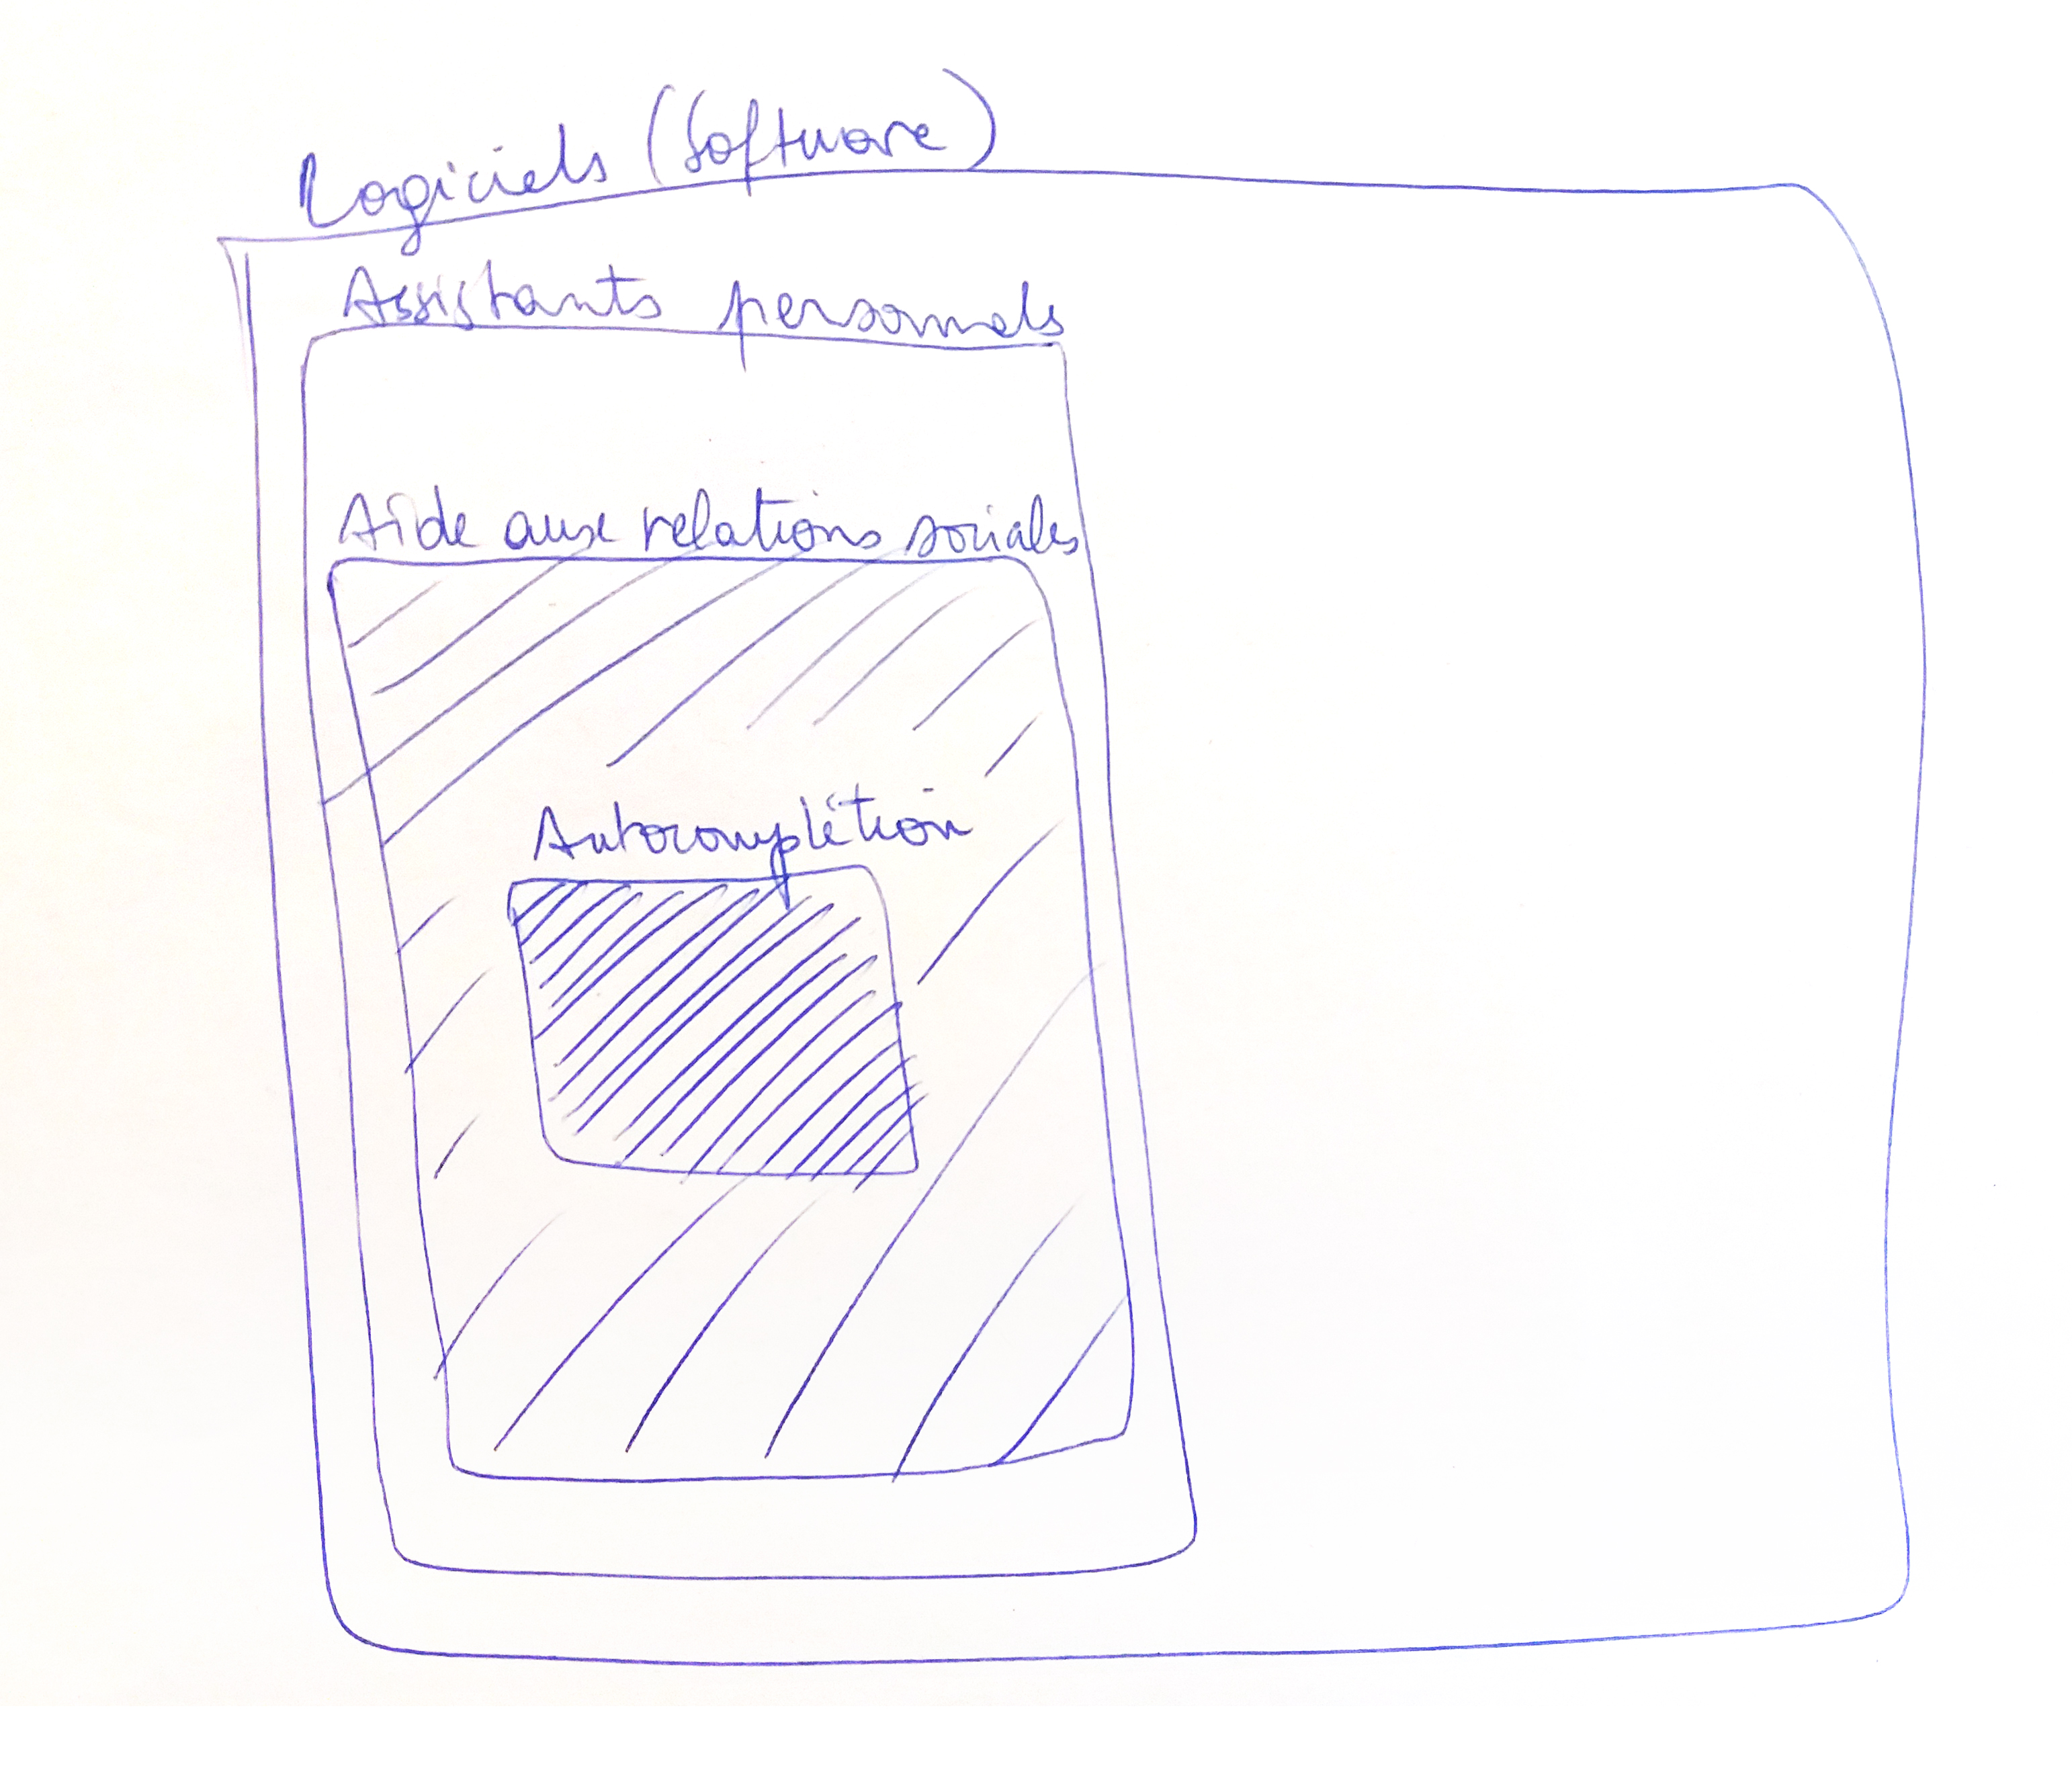 Logiciels (Software)
Assistants personnels
Aide aux relations sociales
Autocomplétion